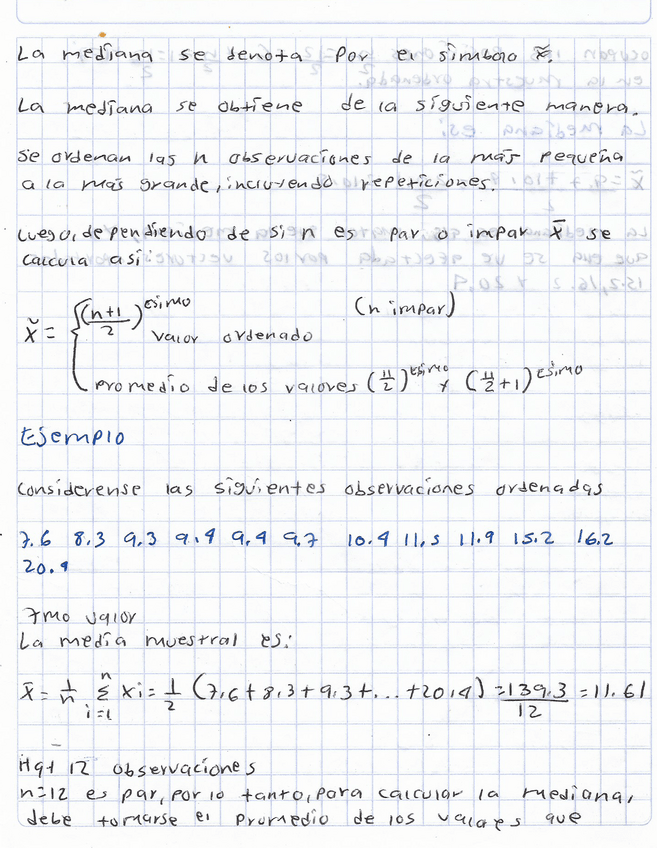 La mediana se denota por el simbolo x̃.
La mediana se obtiene de la siguiente manera.
Se ordenan las n observaciones de la más pequeña
a la más grande, incluyendo repeticiones.
Luego, dependiendo de si n es par o impar x̄ se
calcula asi:
x̃ = { ((n+1)/2)^esimo valor ordenado (n impar)
Promedio de los valores (n/2)^esimo y (n/2+1)^esimo
Ejemplo
Considerense las siguientes observaciones ordenadas
7.6 8.3 9.3 9.4 9.4 9.7 10.4 11.5 11.9 15.2 16.2
20.4
7mo valor
La media muestral es:
x̄ = 1/n Σ_{i=1}^{n} xi = 1/2 (7,6+8,3+9,3+...+20,4) = 139.3/12 = 11.61
Hay 12 observaciones
n=12 es par, por lo tanto, para calcular la mediana,
debe tomarse el promedio de los valores que